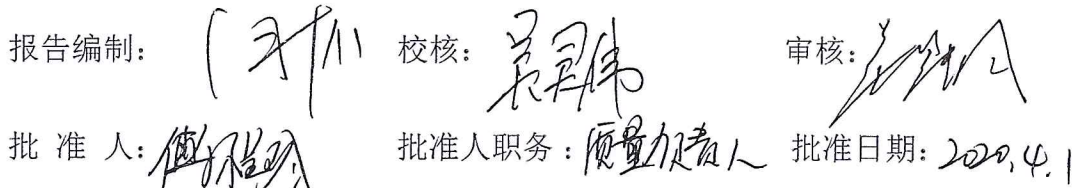 报告编制： 校核：吴昊伟 审核：
批 准 人： 批准人职务：质量负责人 批准日期：2020.4.1